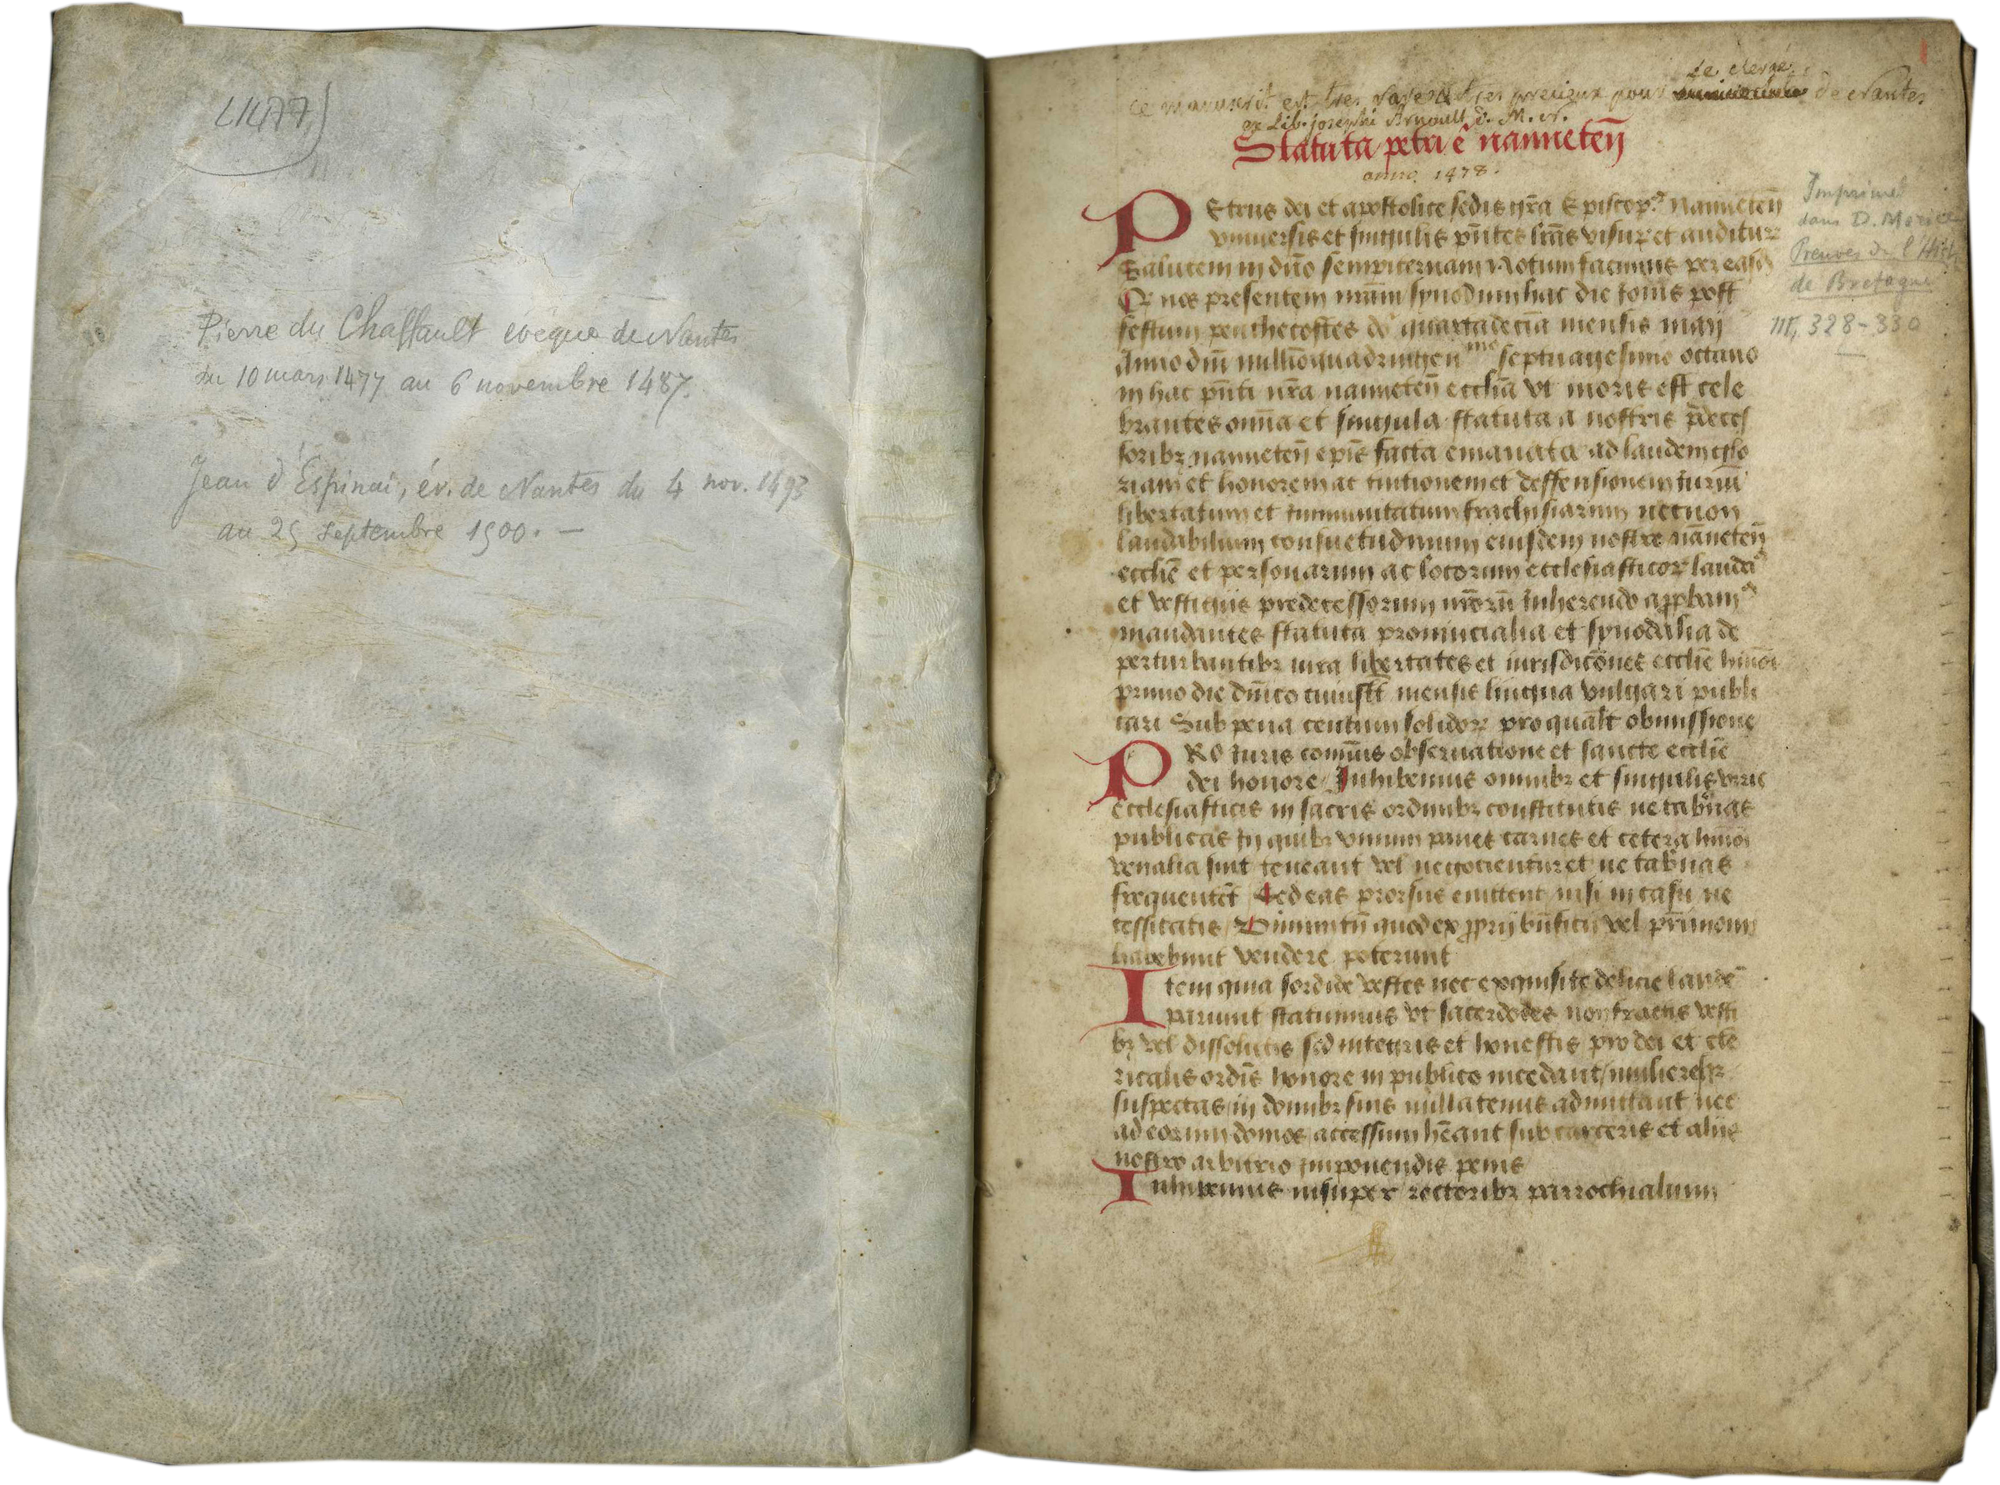 (1477)
Pierre du Chaffault evêque de Nantes
du 10 mars 1477 au 6 novembre 1487.
Jean d'Espinai, év. de Nantes du 4 nov. 1493
au 25 septembre 1500. —
le clergé
ce manuscrit est tres rare et tres precieux pour de Nantes
ex Lib. josephi
Statuta petri ē nanneteñ
anno 1478.
Imprimé
dans D. Morice
Preuves de l'Hist.
de Bretagne
III, 328-330
PEtrus dei et apostolice sedis gr̄a Episcopꝰ Nanneteñ
vniuersis et singulis pñtes lr̄as visur et auditur
Salutem in dn̄o sempiternam Notum facimus per
nos presentem nr̄am synodum hac die iouis post
festum penthecostes quartadecīa mensis maij
Anno dn̄i millīo quadringen mo septuagesimo octauo
in hac pn̄ti nr̄a nanneteñ eccliā vt moris est cele
brantes omīa et singula statuta a nostris p̄deces
soribꝫ nanneteñ ep̄is facta emanata ad laudem glo
riam et honorem ac tuitionem et deffensionem iuriū
libertatum et immunitatum franchisiarum necnon
laudabilium consuetudinum eiusdem nostre nāneteñ
ecclīe et personarum ac locorum ecclesiasticoꝝ laudaꝰ
et vestigiis predecessorum nr̄orū inherendo approbamꝰ
mandantes statuta prouincialia et synodalia de
perturbantibꝫ iura libertates et iurisdicōnes ecclīe hmōi
primo die dn̄ico cuiuslꝫ mensis lingua vulgari publi
cari Sub pena centum solidoꝝ pro qualꝫ obmissione
PRo iuris comūis obseruatione et sancte ecclīe
dei honore Inhibemus omnibꝫ et singulis viris
ecclesiasticis in sacris ordinibꝫ constitutis ne tab̄nas
publicas in quibꝫ vinum panes carnes et cetera hmōi
venalia sint teneant vel negocientur et ne tab̄nas
frequentēt Sed eas prorsus euitent nisi in casu ne
cessitatis Vinum tn̄ quod ex ꝓprij bn̄ficij vel pr̄imonij
habebunt vendere poterunt
Item quia sordide vestes nec exquisite delicie laudē
pariunt statuimus vt sacerdotes non fractis vesti
bꝫ vel dissolutis sed integris et honestis pro dei et cle
ricalis ordīs honore in publico incedant mulieresqꝫ
suspectas in domibꝫ suis nullatenus admittant nec
ad eorum domos accessum hēant sub carceris et aliis
nostro arbitrio imponendis penis
Inhibemus insuper rectoribꝫ parrochialium